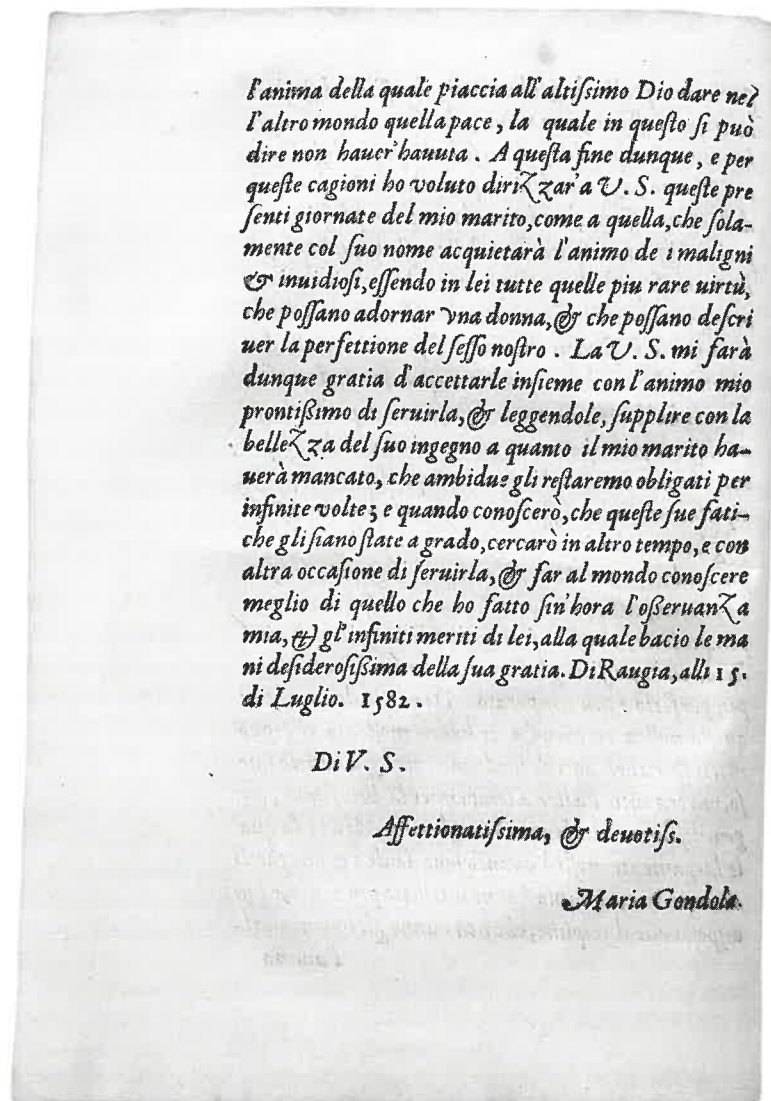 l'anima della quale piaccia all'altiſsimo Dio dare nel
l'altro mondo quella pace, la quale in queſto ſi può
dire non hauer'hauuta. A queſta fine dunque, e per
queſte cagioni ho voluto dirizzar'a V. S. queſte pre
ſenti giornate del mio marito, come a quella, che ſola-
mente col ſuo nome acquietarà l'animo de i maligni
& inuidioſi, eſſendo in lei tutte quelle piu rare uirtù,
che poſſano adornar vna donna, & che poſſano deſcri
uer la perfettione del ſeſſo noſtro. La V. S. mi farà
dunque gratia d'accettarle inſieme con l'animo mio
prontißimo di ſeruirla, & leggendole, ſupplire con la
bellezza del ſuo ingegno a quanto il mio marito ha-
uerà mancato, che ambidue gli reſtaremo obligati per
infinite volte; e quando conoſcerò, che queſte ſue fati-
che gli ſiano ſtate a grado, cercarò in altro tempo, e con
altra occaſione di ſeruirla, & far al mondo conoſcere
meglio di quello che ho fatto ſin'hora l'oßeruanza
mia, & gl'infiniti meriti di lei, alla quale bacio le ma
ni deſideroſiſsima della ſua gratia. Di Raugia, alli 15.
di Luglio. 1582.
Di V. S.
Affettionatiſsima, & deuotiſs.
Maria Gondola.